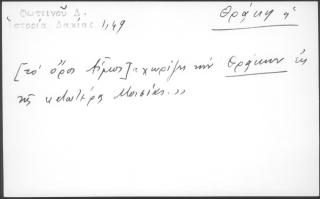 Φωτεινοῦ Δ.
Ἱστορία Δακίας 1,49
Θράκη ἡ
[τὸ ὄρος Αἷμος] "χωρίζει τὴν Θράκην ἐκ
τῆς κατωτέρας Μοισίας."